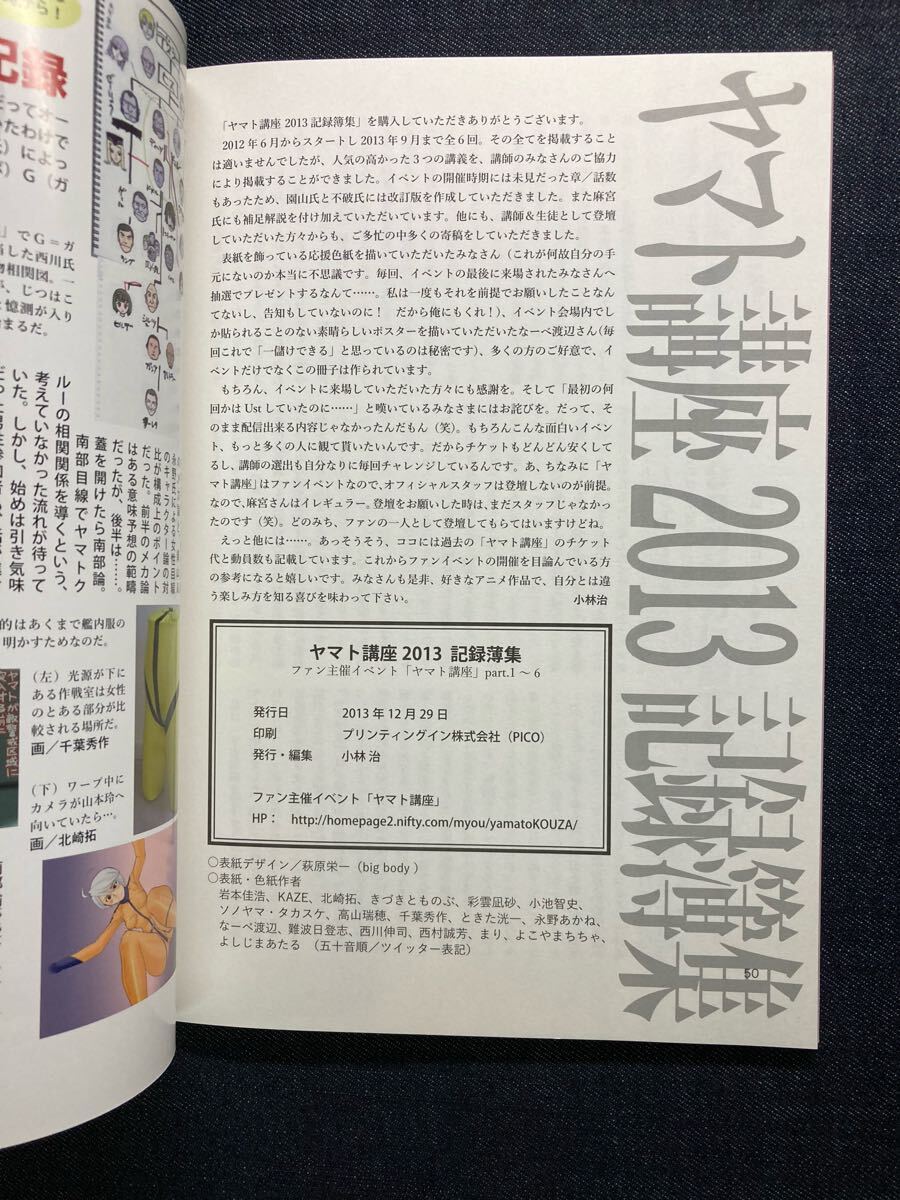 ヤマト講座 2013 記録簿集
「ヤマト講座 2013 記録簿集」を購入していただきありがとうございます。
2012 年 6 月からスタートし 2013 年 9 月まで全 6 回。その全てを掲載すること
は適いませんでしたが、人気の高かった 3 つの講義を、講師のみなさんのご協力
により掲載することができました。イベントの開催時期には未見だった章／話数
もあったため、園山氏と不破氏には改訂版を作成していただきました。また麻宮
氏にも補足解説を付け加えていただいています。他にも、講師＆生徒として登壇
していただいた方々からも、ご多忙の中多くの寄稿をしていただきました。
表紙を飾っている応援色紙を描いていただいたみなさん（これが何故自分の手
元にないのか本当に不思議です。毎回、イベントの最後に来場されたみなさんへ
抽選でプレゼントするなんて……。私は一度もそれを前提でお願いしたことなん
てないし、告知もしていないのに！　だから俺にもくれ！）、イベント会場内でし
か貼られることのない素晴らしいポスターを描いていただいたなーべ渡辺さん（毎
回これで「一儲けできる」と思っているのは秘密です）、多くの方のご好意で、イ
ベントだけでなくこの冊子は作られています。
もちろん、イベントに来場していただいた方々にも感謝を。そして「最初の何
回かは Ust していたのに……」と嘆いているみなさまにはお詫びを。だって、そ
のまま配信出来る内容じゃなかったんだもん（笑）。もちろんこんな面白いイベン
ト、もっと多くの人に観て貰いたいんです。だからチケットもどんどん安くして
てるし、講師の選出も自分なりに毎回チャレンジしているんです。あ、ちなみに「ヤ
マト講座」はファンイベントなので、オフィシャルスタッフは登壇しないのが前提。
なので、麻宮さんはイレギュラー。登壇をお願いした時は、まだスタッフじゃなかっ
たのです（笑）。どのみち、ファンの一人として登壇してもらてはいますけどね。
えっと他には……。あっそうそう、ココには過去の「ヤマト講座」のチケット
代と動員数も記載しています。これからファンイベントの開催を目論んでいる方
の参考になると嬉しいです。みなさんも是非、好きなアニメ作品で、自分とは違
う楽しみ方を知る喜びを味わって下さい。
小林治
ヤマト講座 2013 記録薄集
ファン主催イベント「ヤマト講座」part.1 〜 6
発行日　2013 年 12 月 29 日
印刷　プリンティングイン株式会社（PICO）
発行・編集　小林 治
ファン主催イベント「ヤマト講座」
HP：　http://homepage2.nifty.com/myou/yamatoKOUZA/
○表紙デザイン／萩原栄一（big body ）
○表紙・色紙作者
岩本佳浩、KAZE、北崎拓、きづきとものぶ、彩雲凪砂、小池智史、
ソノヤマ・タカスケ、高山瑞穂、千葉秀作、ときた洸一、永野あかね、
なーべ渡辺、難波日登志、西川伸司、西村誠芳、まり、よこやまちちゃ、
よしじまあたる　（五十音順／ツイッター表記）
50
記録
だってオー
いたわけで
）によっ
）G（ガ
」でG＝ガ
した西川氏
物相関図。一
が、じつはこ
憶測が入り
まるだ。
永野氏による女性目線
のキャラクター論の対
比が構成上のポイント
だった。前半のメカ論
はある意味予想の範疇
だったが、後半は……。
蓋を開けたら南部論。
南部目線でヤマトク
ルーの相関関係を導くという、
考えていなかった流れが待って
いた。しかし、始めは引き気味
的はあくまで艦内服の
明かすためなのだ。
（左）光源が下に
ある作戦室は女性
のとある部分が比
較される場所だ。
画／千葉秀作
（下）ワープ中に
カメラが山本玲へ
向いていたら…。
画／北崎拓